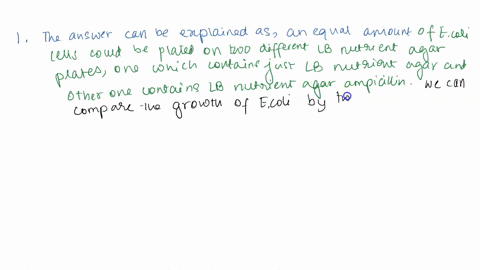 1. The answer can be explained as, an equal amount of E.coli
cells could be plated on two different LB nutrient agar
plates, one which contains just LB nutrient agar and
other one contains LB nutrient agar ampicillin. We can
compare the growth of E.coli by